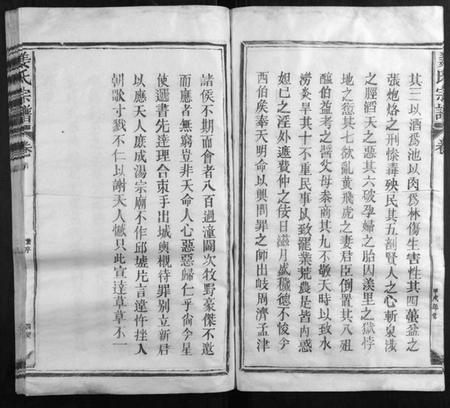 姜氏宗譜
卷
其三以酒爲池以肉爲林傷生害性其四蠆盆之
張炮烙之刑慘毒殃民其五剖賢人之心斬臬淺
之脛滔天之惡其六破孕婦之胎囚羑里之獄悖
地之愆其七欲亂黃飛虎之妻君臣倒置其八
醢伯益者之醬父母泰商其九不敬天時以致水
澇炎旱其十不重民事以致罷業荒農是皆內惑
妲己之淫外遮費仲之佞日滋月盛穢德不悛兮
西伯矦奉天明命以興問罪之師出岐周濟孟津
諸侯不期而會者八百過潼關次牧野豪傑不遮
而應者無窮豈非天命人心惡惡歸仁乎倘今星
使邇書先達理合束手出城輿櫬待罪別立新君
以應天人庶成湯宗廟不作邱墟片言違忤挫人
朝歌寸戮不仁以謝天人憾只此宣達草草不一
姜氏宗譜
卷